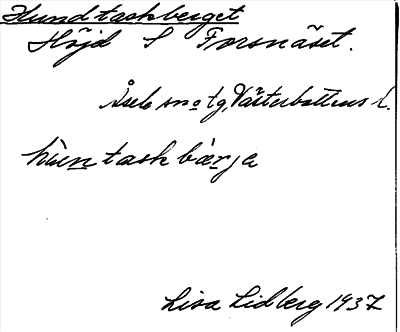 Hundtaskberget
Höjd S Forsnäset.
Åsele sn o tg, Västerbottens l.
hùntaskbærja
Lisa Lidberg 1937